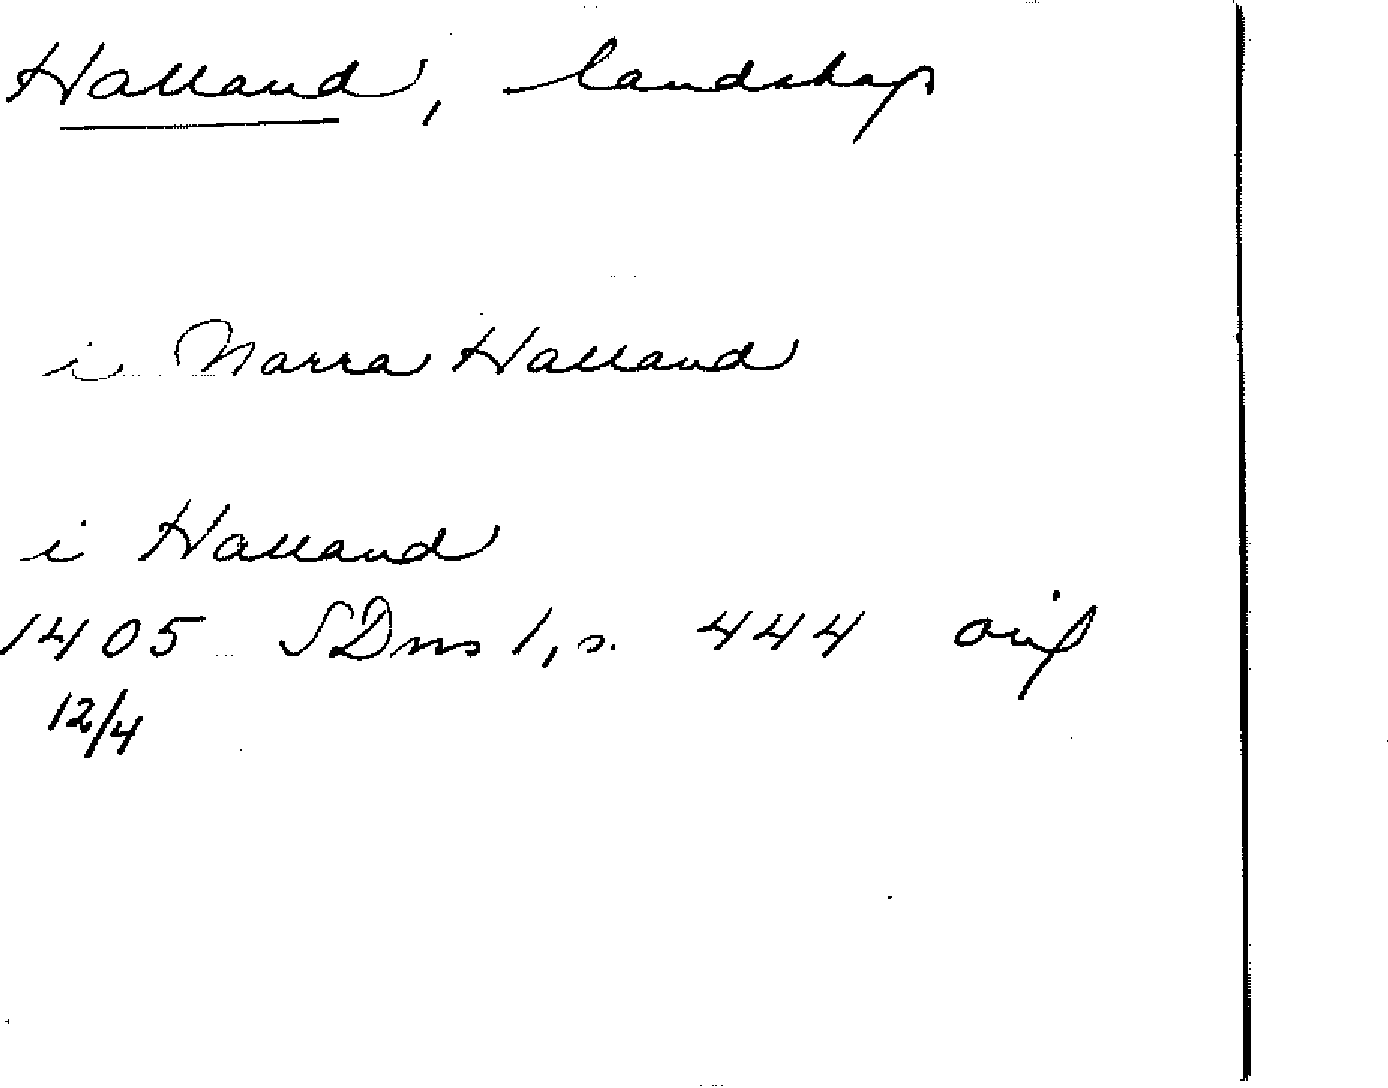 Halland, landskap
i Narra Halland
i Halland
1405 SDns 1, s. 444 or
12/4